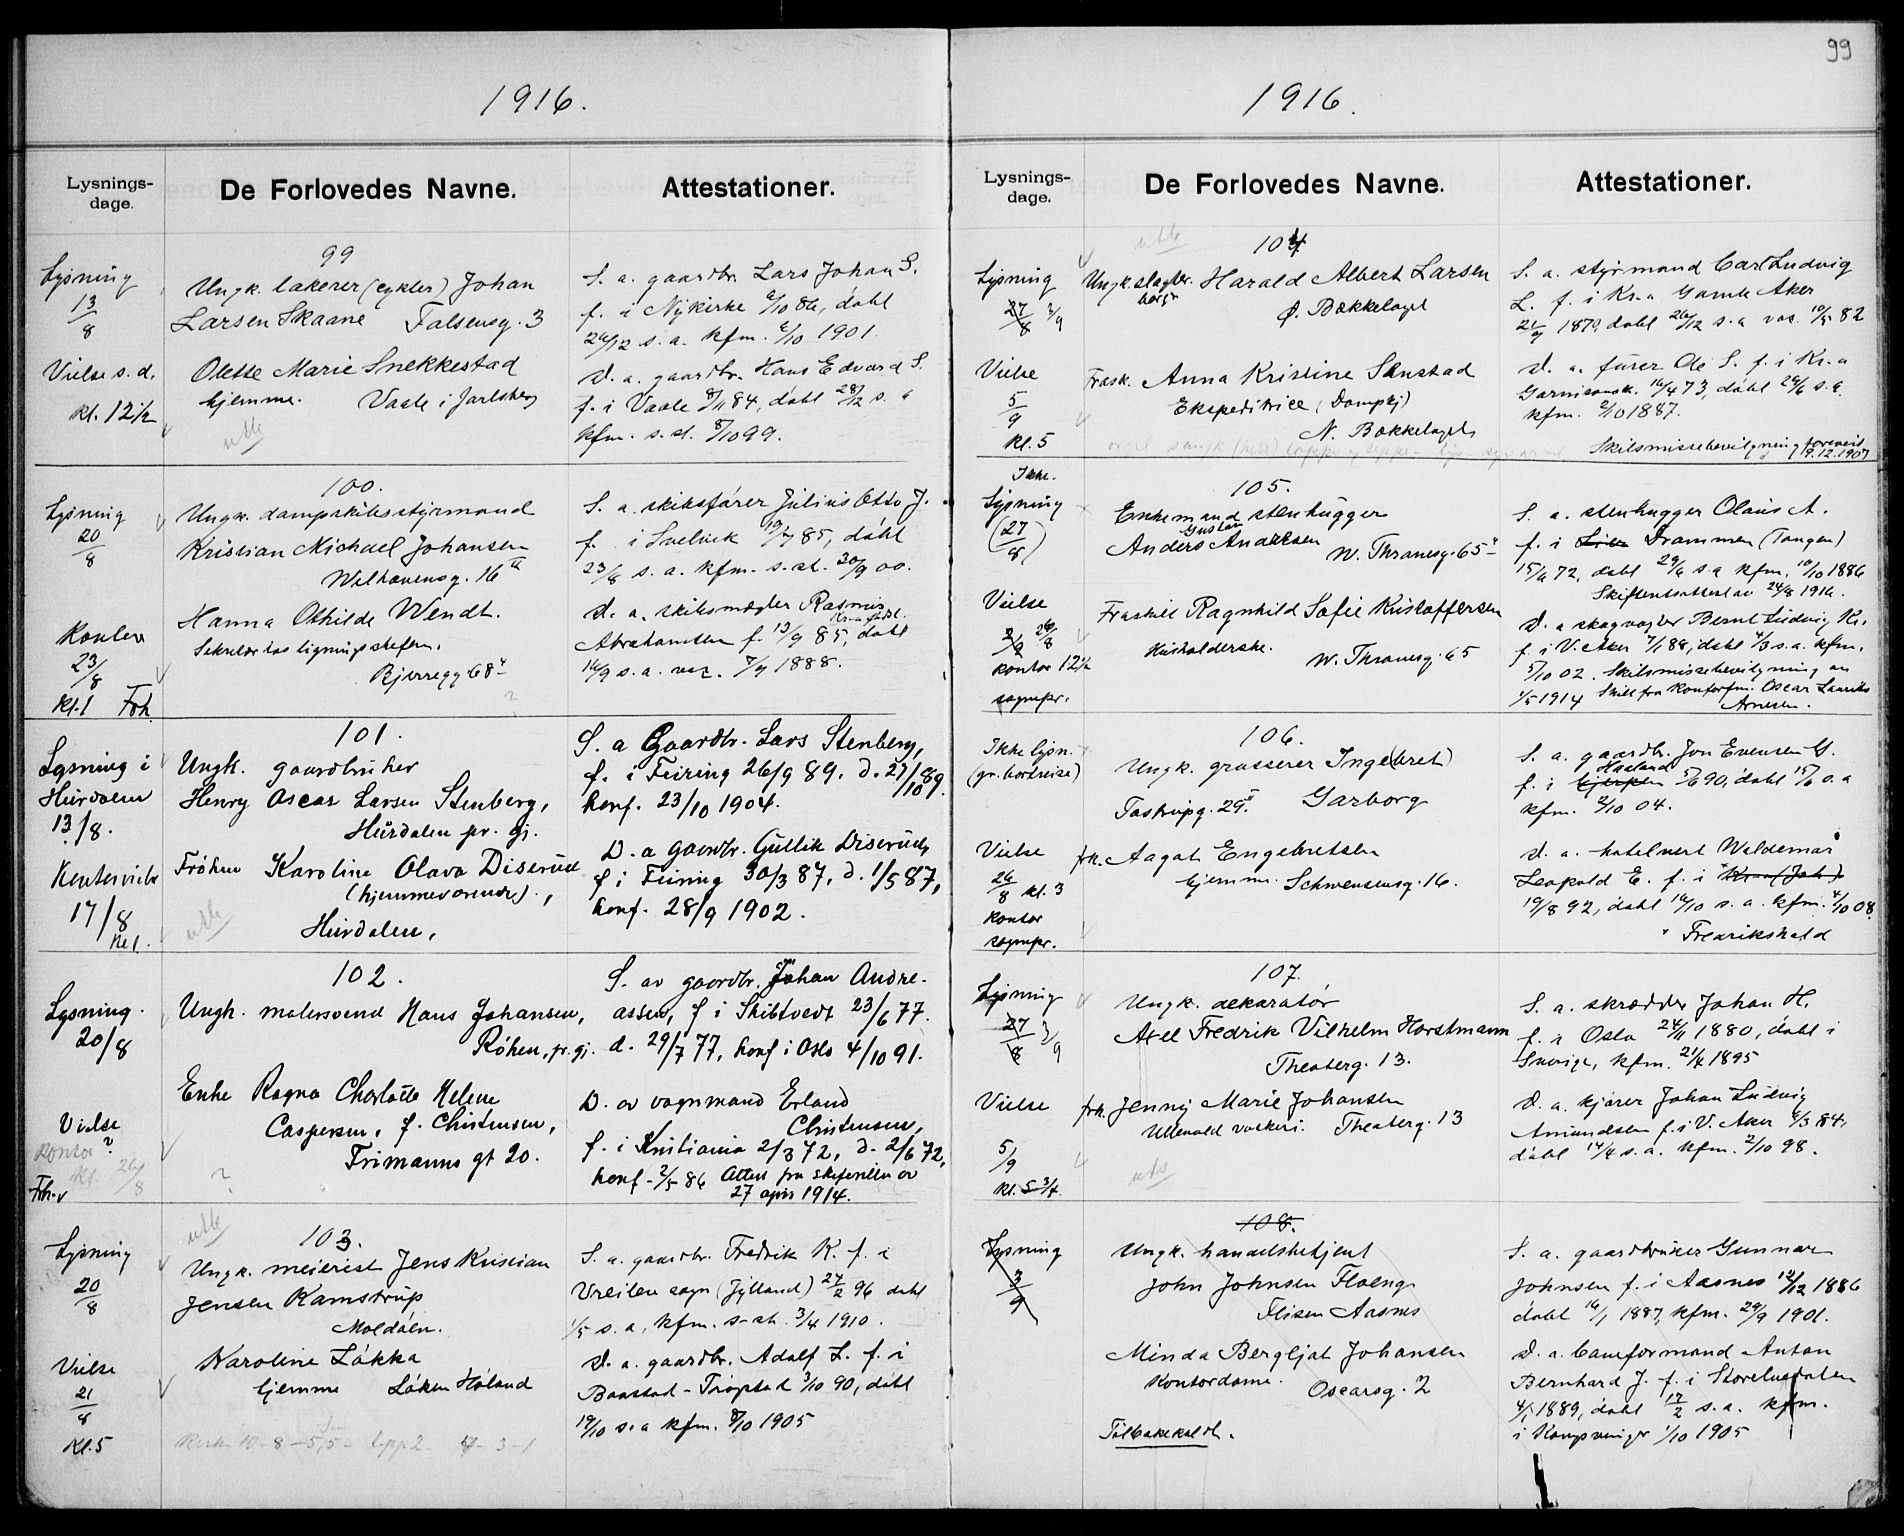 99
1916.
Lysnings-
dage.
De Forlovedes Navne.
Attestationer.
99
Lysning
13/8
Ungk. lakerer (cykler) Johan
Larsen Skaane Falsensg. 3
S. a. gaardbr. Lars Johan S.
f. i Nykirke 6/10 86, døbt
26/12 s. a. kfm. 6/10 1901.
Vielse s. d.
kl. 12 1/2
Olette Marie Snekkestad
hjemme. Vaale i Jarlsberg
D. a. gaardbr. Hans Edvard S.
f. i Vaale 8/11 84, døbt 28/12 s. a
kfm. s. st. 8/10 99.
utb
100.
Lysning
20/8
Ungk. dampskibsstyrmand
Kristian Michael Johansen
Welhavensg. 16 II
S. a. skibsfører Julius Otto J.
f. i Svelvik 19/7 85, døbt
23/8 s. a. kfm. s. st. 30/9 00.
Kontor
23/8
Kl. 1 Frh.
Hanna Othilde Wendt.
Sekretær hos ligningschefen.
Bjerregg 68
D. a. skibsmægler Rasmus
Abrahamsen f. 13/9 85, døbt
16/9 s. a. vac. 7/9 1888.
101.
Lysning i
Hurdalen
13/8.
Ungk. gaardbruker
Henry Oscar Larsen Stenberg,
Hurdalen pr. gj.
S. a Gaardbr. Lars Stenberg,
f. i Feiring 26/9 89. d. 27/10 89.
konf. 23/10 1904.
Kontorvielse
17/8
Kl 1.
Frøken Karoline Olava Diserud
(hjemmeværende).,
Hurdalen,
D. a gaardbr. Gullik Diserud,
f i Feiring 30/3 87, d. 1/5 87,
konf. 28/9 1902.
utb
102.
Lysning.
20/8
Ungk. malersvend Hans Johansen,
Røken, pr. gj.
S. av gaardbr. Johan Andre-
assen, f i Skibtvedt 23/6 77.
d. 29/7 77, konf i Oslo 4/10 91.
Vielse
Kontor?
Kl. 26/8
Frh.
Enke Ragna Charlotte Helene
Caspersen, f. Christensen,
Frimanns gt 20.
D. av vognmand Erland
Christensen,
f. i Kristiania 2/3 72, d. 2/6 72,
konf - 2/5 86 Attest fra skifteretten av
27 april 1914.
utb
103.
Lysning
20/8
Ungk. meierist Jens Kristian
Jensen Kamstrup
Moldøen.
S. a. gaardbr. Fredrik K. f. i
Vreilev sogn (Jylland) 27/2 96 døbt
1/5 s. a, kfm. s-st. 3/4 1910.
Vielse
21/8
Kl. 5
Karoline Løkka
hjemme Løken Høland
D. a. gaardbr. Adolf L. f. i
Baastad - Trøgstad 3/10 90, døbt
19/10 s. a kfm. 8/10 1905
1916.
Lysnings-
dage.
De Forlovedes Navne.
Attestationer.
utb
104
Lysning
27/8 3/9
Ungk. slagter-
borger Harald Albert Larsen
Ø. Bækkelaget
S. a. styrmand Carl Ludvig
L. f. i Kr.a Gamle Aker
21/9 1879, døbt 26/12 s. a vac. 10/5 82
Vielse
5/9
Kl. 5
Frask. Anna Kristine Sanstad
Ekspeditrice (Dampkj)
N. Bækkelaget
D. a. furer Ole S. f. i Kr.a
Garnisonsk. 16/4 73, døbt 29/6 s. a.
kfm. 2/10 1887.
Skilsmissebevilgning forevist
9.12.1907
105.
Ikke
Lysning
(27/8)
Enkemand stenhugger
Anders Gustav Andersen
W. Thranesg. 65
S. a. stenhugger Olaus A.
f. i Lier Drammen (Tangen)
15/6 72, døbt 29/6 s. a kfm. 10/10 1886
Skifteretsattest av 24/8 1916.
Vielse
2/9 26/8
kontor 12 1/2
sognepr.
Fraskilt Ragnhild Sofie Kristoffersen
Husholderske.
W. Thranesg. 65
D. a skogvogter Bernt Ludvig K.
f i V. Aker 7/1 88, døbt 4/3 s. a. kfm.
5/10 02. Skilsmissebevilgning av
1/5 1914 Skilt fra kontorfm. Oscar Laurits
Arnesen.
106.
Ikke lysn.
(gr. bortreise)
Ungk. grosserer Inge(bret)
Tostrupg. 29 I Garborg
S. a. gaardbr. Jon Evensen G.
f. i Hjerpen Høland 5/6 90, døbt 15/6 s. a
kfm. 2/10 04.
Vielse
26/8 kl. 3
kontor
sognepr.
frk. Aagot Engebretsen
hjemme. Schwensensg. 16.
D. a. hotelvert Waldemar
Leopold E. f. i Kr.a (Joh.)
19/8 92, døbt 16/10 s. a. kfm. 4/10 08.
" Fredrikshald
107.
Lysning
27/8 3/9
Ungk. dekoratør
Axel Fredrik Vilhelm Horstmann
Theaterg. 13.
S. a. skrædder Johan H.
f. i Oslo 24/11 1880, døbt i
Sverige, kfm. 21/4 1895
Vielse
5/9
kl. 5 3/4.
frk. Jenny Marie Johansen
Ullevold vaskeri. Theaterg. 13
D. a. kjører Johan Ludvig
Amundsen f. i V. Aker 6/3 84,
døbt 14/4 s. a. kfm. 2/10 98.
utb
108.
Lysning
3/9
Ungk. handelsbetjent
John Johnsen Floeng
Flisen Aasnes
S. a. gaardbruker Gunnar
Johnsen f. i Aasnes 12/12 1886
døbt 16/1 1887, kfm. 29/9 1901.
Minda Bergljot Johansen
Kontordame.
Oscarsg. 2
D. a. baneformand Anton
Bernhard J. f. i Storelvedalen
4/1 1889, døbt 17/2 s. a. kfm.
i Kongsvinger 1/10 1905
Tilbakekaldt.